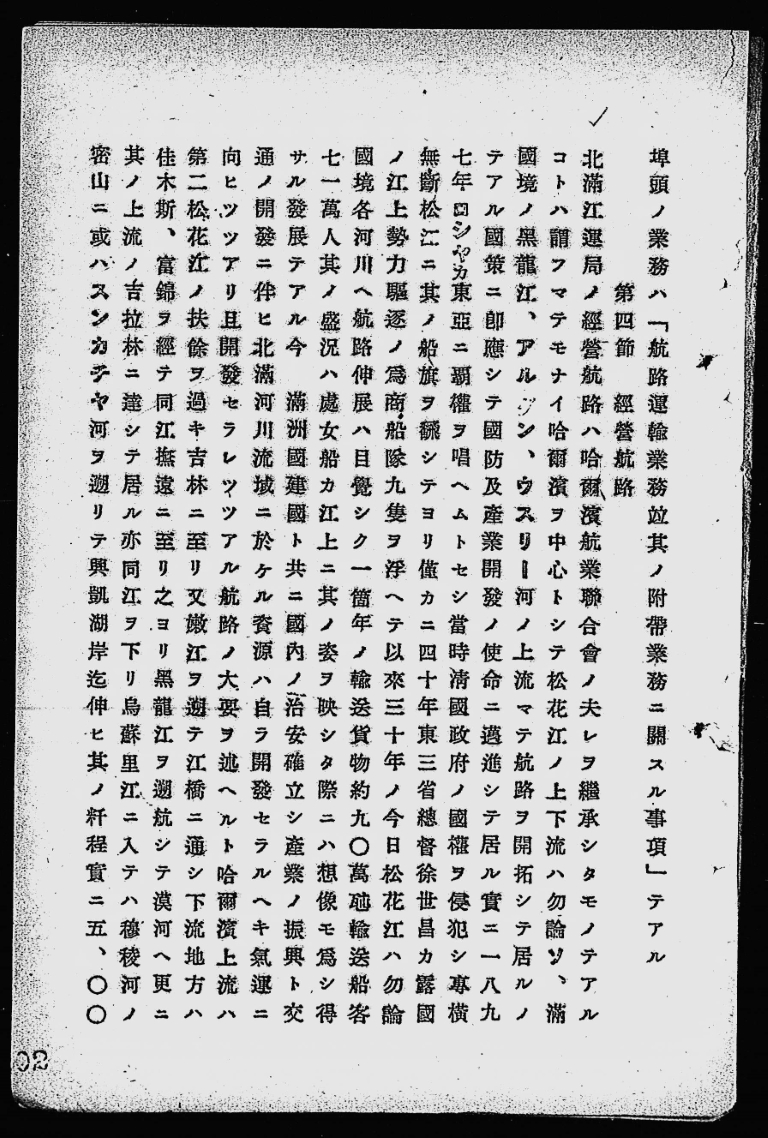 埠頭ノ業務ハ「航路運輸業務竝其ノ附帶業務ニ關スル事項」テアル
第四節 經營航路
北滿江運局ノ經營航路ハ哈爾濱航業聯合會ノ夫レヲ繼承シタモノテアル
コトハ謂フマテモナイ哈爾濱ヲ中心トシテ松花江ノ上下流ハ勿論ソ、滿
國境ノ黑龍江、アルグン、ウスリー河ノ上流マテ航路ヲ開拓シテ居ルノ
テアル國策ニ卽應シテ國防及產業開發ノ使命ニ邁進シテ居ル實ニ一八九
七年ロシヤカ東亞ニ覇權ヲ唱ヘムトセシ當時淸國政府ノ國權ヲ侵犯シ專橫
無斷松江ニ其ノ船旗ヲ飜シテヨリ僅カニ四十年東三省總督徐世昌カ露國
ノ江上勢力驅逐ノ爲商船隊九隻ヲ浮ヘテ以來三十年ノ今日松花江ハ勿論
國境各河川ヘ航路伸展ハ目覺シク一箇年ノ輸送貨物約九〇萬瓲輸送船客
七一萬人其ノ盛況ハ處女船カ江上ニ其ノ姿ヲ映シタ際ニハ想像モ爲シ得
サル發展テアル今 滿洲國建國ト共ニ國內ノ治安確立シ產業ノ振興ト交
通ノ開發ニ伴ヒ北滿河川流域ニ於ケル資源ハ自ラ開發セラルヘキ氣運ニ
向ヒツツアリ且開發セラレツツアル航路ノ大要ヲ述ヘルト哈爾濱上流ハ
第二松花江ノ扶餘ヲ過キ吉林ニ至リ又嫩江ヲ遡テ江橋ニ通シ下流地方ハ
佳木斯、富錦ヲ經テ同江撫遠ニ至リ之ヨリ黑龍江ヲ遡航シテ漠河ヘ更ニ
其ノ上流ノ吉拉林ニ達シテ居ル亦同江ヲ下リ烏蘇里江ニ入テハ穆稜河ノ
密山ニ或ハスンカチヤ河ヲ遡リテ興凱湖岸迄伸ヒ其ノ粁程實ニ五、〇〇
02